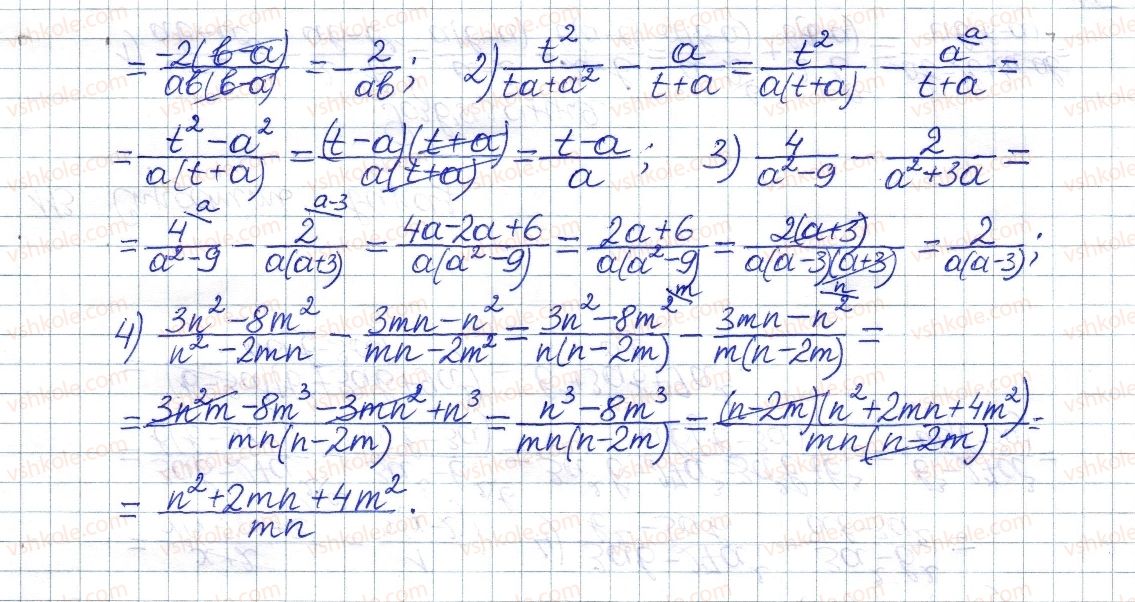 = -2(b-a)/ab(b-a) = -2/ab; 2) t²/ta+a² - a/t+a = t²/a(t+a) - a^a/t+a =
= t²-a²/a(t+a) = (t-a)(t+a)/a(t+a) = t-a/a; 3) 4/a²-9 - 2/a²+3a =
= 4^a/a²-9 - 2^a-3/a(a+3) = 4a-2a+6/a(a²-9) = 2a+6/a(a²-9) = 2(a+3)/a(a-3)(a+3) = 2/a(a-3);
4) 3n²-8m²/n²-2mn - 3mn-n²/mn-2m² = 3n²-8m²^m/n(n-2m) - 3mn-n²^n/m(n-2m) =
= 3n²m-8m³-3mn²+n³/mn(n-2m) = n³-8m³/mn(n-2m) = (n-2m)(n²+2mn+4m²)/mn(n-2m) =
= n²+2mn+4m²/mn.
vshkole.com